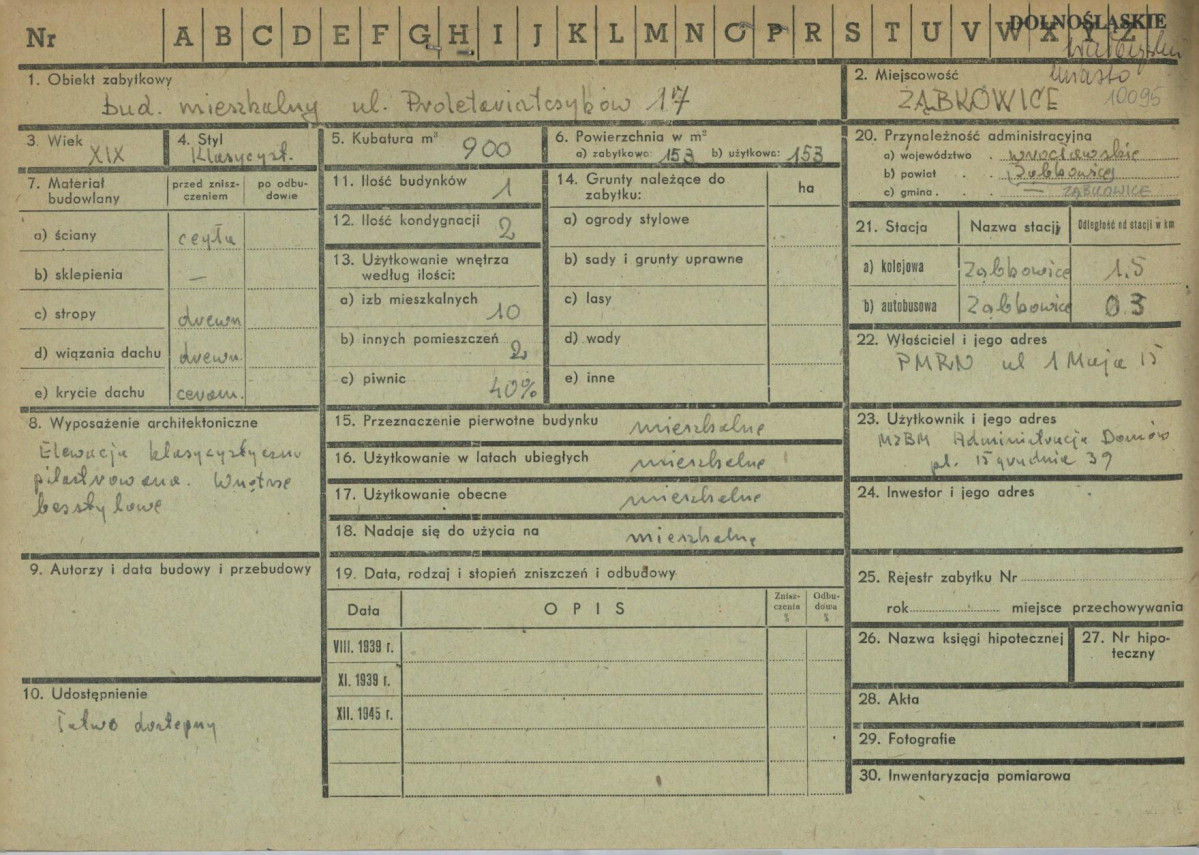 Nr A B C D E F G H I J K L M N O P R S T U V W X Y Z
DOLNOŚLĄSKIE
miasto
1. Obiekt zabytkowy
bud. mieszkalny ul. Proletariatczyków 17
2. Miejscowość
ZĄBKOWICE 10095
3. Wiek
XIX
4. Styl
Klasycyst.
5. Kubatura m³ 900
6. Powierzchnia w m²
a) zabytkowa: 153 b) użytkowa: 153
20. Przynależność administracyjna
a) województwo wrocławskie
b) powiat Ząbkowice
c) gmina — ZĄBKOWICE
7. Materiał budowlany
przed zniszczeniem
po odbudowie
a) ściany cegła
b) sklepienia —
c) stropy drewn
d) wiązania dachu drewn.
e) krycie dachu ceram.
11. Ilość budynków 1
12. Ilość kondygnacji 2
13. Użytkowanie wnętrza według ilości:
a) izb mieszkalnych 10
b) innych pomieszczeń 2
c) piwnic 40%
14. Grunty należące do zabytku:
ha
a) ogrody stylowe
b) sady i grunty uprawne
c) lasy
d) wody
e) inne
21. Stacja Nazwa stacji Odległość od stacji w km
a) kolejowa Ząbkowice 1.5
b) autobusowa Ząbkowice 0.3
22. Właściciel i jego adres
PMRN ul 1 Maja 15
8. Wyposażenie architektoniczne
Elewacja klasycystyczna
pilastrowana. Wnętrze
bezstylowe
15. Przeznaczenie pierwotne budynku mieszkalne
16. Użytkowanie w latach ubiegłych mieszkalne
17. Użytkowanie obecne mieszkalne
18. Nadaje się do użycia na mieszkalne
23. Użytkownik i jego adres
MZBM Administracja Domów
pl. 15 grudnia 39
24. Inwestor i jego adres
9. Autorzy i data budowy i przebudowy
19. Data, rodzaj i stopień zniszczeń i odbudowy
Data OPIS Zniszczenia % Odbudowa %
VIII. 1939 r.
XI. 1939 r.
XII. 1945 r.
25. Rejestr zabytku Nr
rok miejsce przechowywania
26. Nazwa księgi hipotecznej
27. Nr hipoteczny
10. Udostępnienie
Łatwo dostępny
28. Akta
29. Fotografie
30. Inwentaryzacja pomiarowa